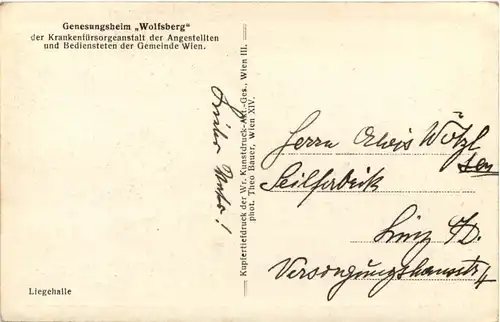 Genesungsheim „Wolfsberg"
der Krankenfürsorgeanstalt der Angestellten
und Bediensteten der Gemeinde Wien.
Kupfertiefdruck der Wr. Kunstdruck-Akt.-Ges., Wien III.
phot. Theo Bauer, Wien XIV.
Lieber Vater!
Herrn Alois Wötzl
sen
Seilfabrik
Linz a/D.
Versorgungshausstr
Liegehalle